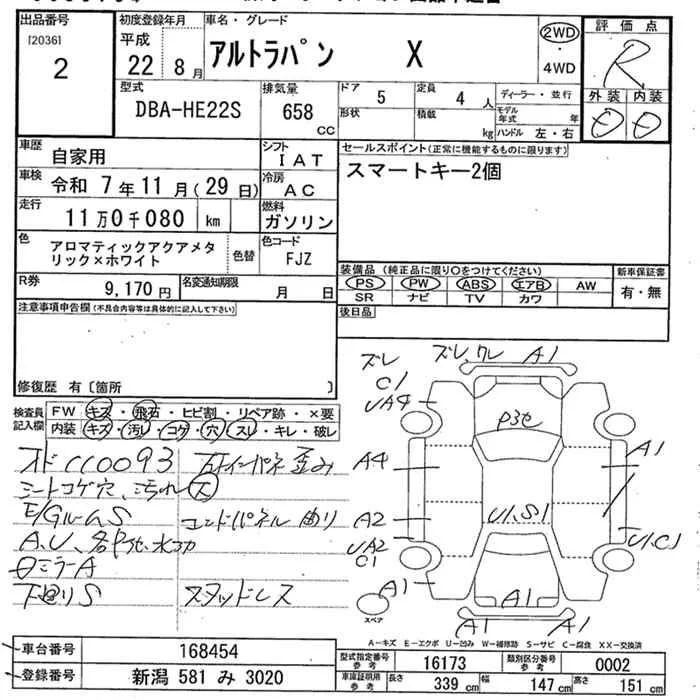 出品番号
[2036]
2
初度登録年月
平成
22 8月
車名・グレード
アルトラパン X
2WD
・
4WD
評価点
R
外装 内装
型式
DBA-HE22S
排気量
658
cc
ドア 5
定員 4人
ディーラー・並行
形状
積載
kg
モデル年式 年
ハンドル 左・右
車歴
自家用
シフト
IAT
セールスポイント(正常に機能するものに限ります)
スマートキー2個
車検 令和 7年11月(29日)
冷房
AC
走行
11万0千080 km
燃料
ガソリン
色
アロマティックアクアメタ
リック×ホワイト
色替
色コード
FJZ
装備品(純正品に限り○をつけてください)
PS PW ABS エアB AW
SR ナビ TV カワ
新車保証書
有・無
R券
9,170円
名変通知期限
月 日
後日品
注意事項申告欄(不具合内容等は具体的に記入して下さい)
修復歴 有〔箇所 〕
検査員
記入欄
FW キズ・飛石・ヒビ割・リペア跡・×要
内装 キズ・汚れ・コゲ・穴・スレ・キレ・破レ
シートコゲ穴、汚れ
E/GルームS
コンドパネル 曲り
ミラーA
下廻りS
スタッドレス
ズレ
ズレ,ワレ A1
C1
UA4
A4
A1
A2
U1.S1
UA2
C1
U1.C1
A1
A1
A1
A1
A1
スペア
A-キズ E-エクボ U-凹み W-補修跡 S-サビ C-腐食 XX-交換済
車台番号
168454
登録番号
新潟 581 み 3020
型式指定番号
参考
16173
類別区分番号
参考
0002
車庫証明用
参考
長さ 339 cm
幅 147 cm
高さ 151 cm